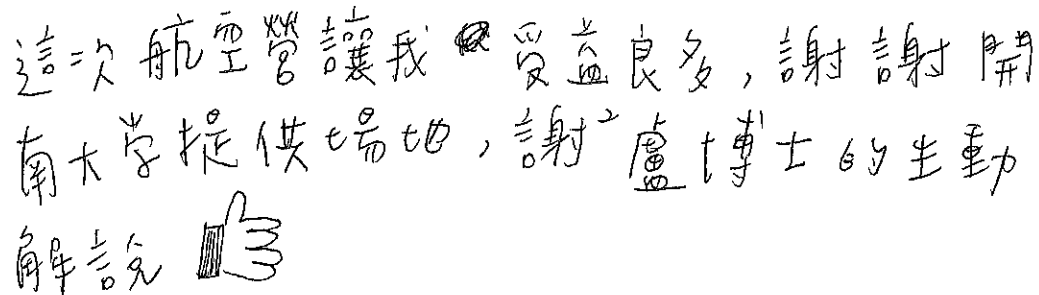 這次航空營讓我受益良多,謝謝開
南大学提供場地,謝²盧博士的生動
解說